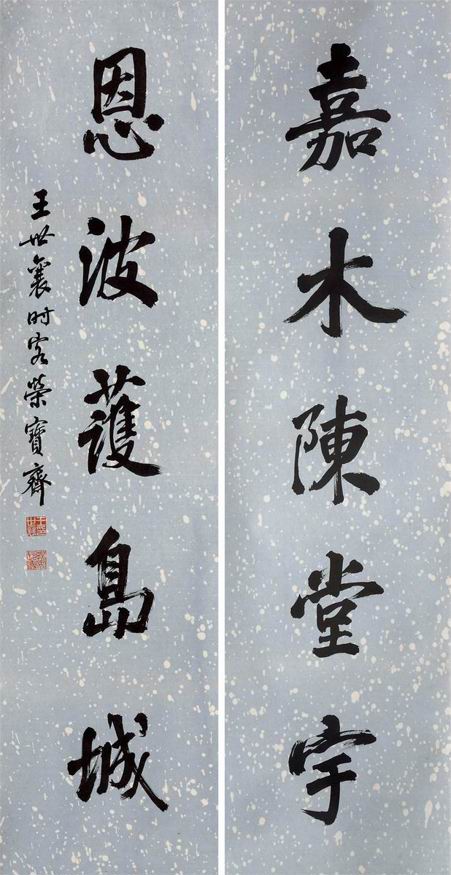 嘉木陳堂宇
恩波護島城
王世襄时客榮寶齋